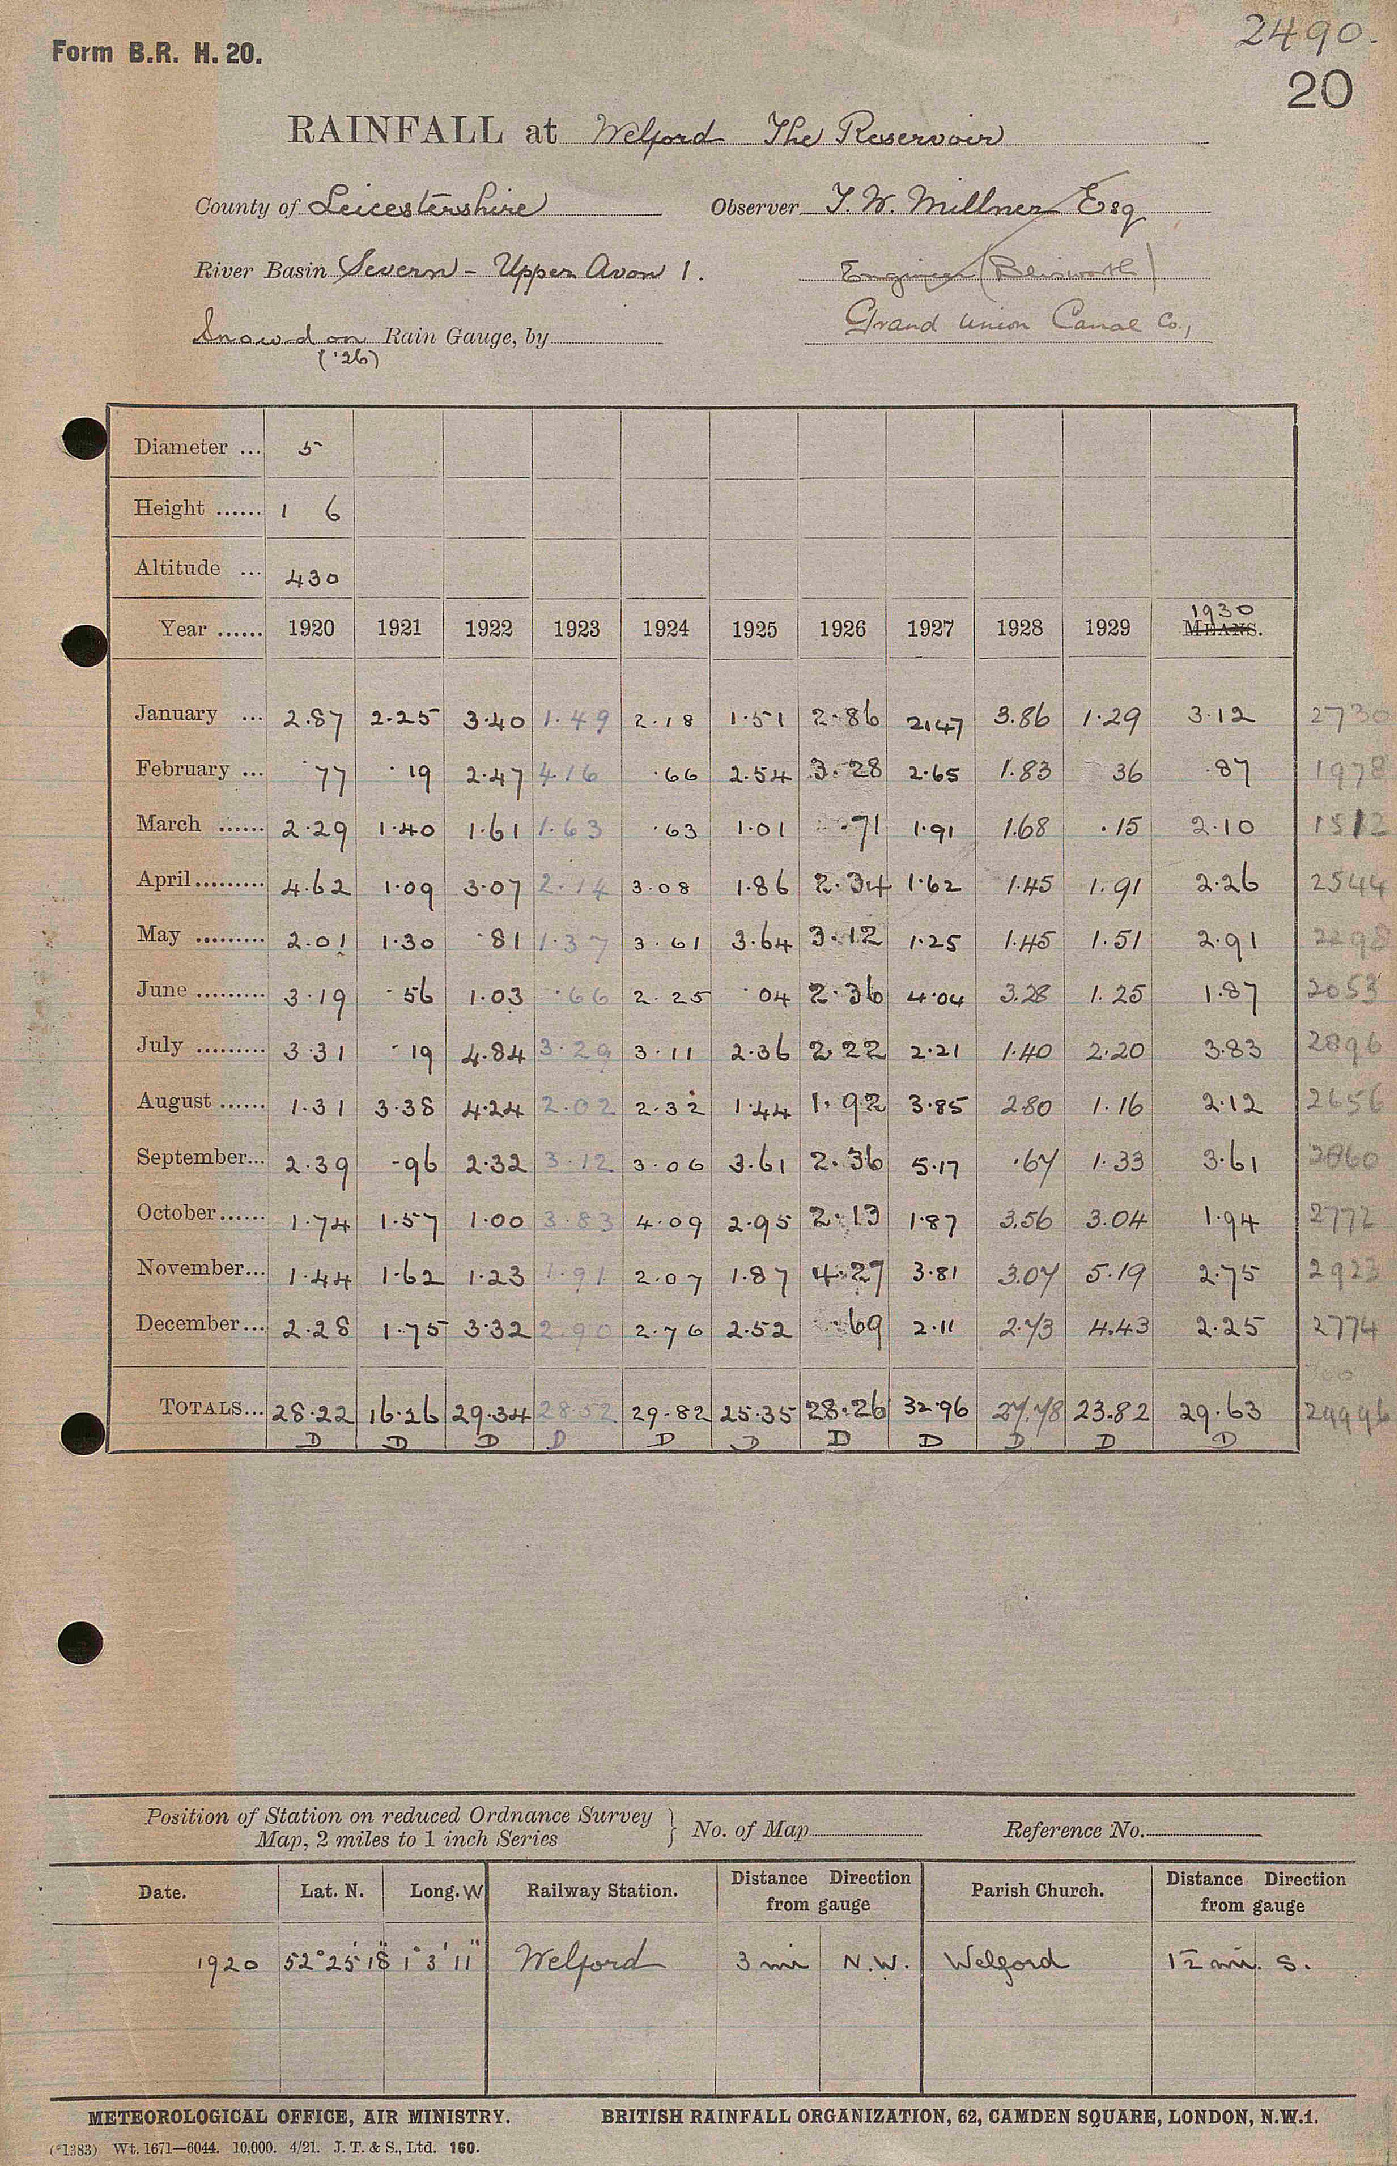 Form B.R. H. 20.
2490.
20
RAINFALL at Welford The Reservoir
County of Leicestershire Observer T. W. Millner Esq
River Basin Severn - Upper Avon 1. Engineer (Blisworth)
Snowdon Rain Gauge, by Grand Union Canal Co.,
('26)
Diameter ... 5
Height ...... 1 6
Altitude ... 430
Year ...... 1920 1921 1922 1923 1924 1925 1926 1927 1928 1929 1930 MEANS.
January ... 2.87 2.25 3.40 1.49 2.18 1.51 2.86 2.47 3.86 1.29 3.12 2730
February ... .77 .19 2.47 4.16 .66 2.54 3.28 2.65 1.83 36 .87 1978
March ...... 2.29 1.40 1.61 1.63 .63 1.01 .71 1.91 1.68 .15 2.10 1512
April ......... 4.62 1.09 3.07 2.14 3.08 1.86 2.34 1.62 1.45 1.91 2.26 2544
May ......... 2.01 1.30 .81 1.37 3.61 3.64 3.12 1.25 1.45 1.51 2.91 2298
June ......... 3.19 .56 1.03 .66 2.25 .04 2.36 4.04 3.28 1.25 1.87 2053
July ......... 3.31 .19 4.84 3.29 3.11 2.36 2.22 2.21 1.40 2.20 3.83 2896
August ...... 1.31 3.38 4.24 2.02 2.32 1.44 1.92 3.85 2.80 1.16 2.12 2656
September... 2.39 .96 2.32 3.12 3.06 3.61 2.36 5.17 .67 1.33 3.61 2860
October...... 1.74 1.57 1.00 3.83 4.09 2.95 2.13 1.87 3.56 3.04 1.94 2772
November... 1.44 1.62 1.23 1.91 2.07 1.87 4.27 3.81 3.07 5.19 2.75 2923
December... 2.28 1.75 3.32 2.90 2.76 2.52 .69 2.11 2.73 4.43 2.25 2774
TOTALS... 28.22 16.26 29.34 28.52 29.82 25.35 28.26 32.96 27.78 23.82 29.63 29996
D D D D D D D D D D D
Position of Station on reduced Ordnance Survey
Map, 2 miles to 1 inch Series } No. of Map Reference No.
Date. Lat. N. Long. W Railway Station. Distance Direction from gauge Parish Church. Distance Direction from gauge
1920 52° 25' 18" 1° 3' 11" Welford 3 mi N.W. Welford 1½ mi. S.
METEOROLOGICAL OFFICE, AIR MINISTRY. BRITISH RAINFALL ORGANIZATION, 62, CAMDEN SQUARE, LONDON, N.W.1.
(*1383) Wt. 1671—6044. 10,000. 4/21. J. T. & S., Ltd. 160.